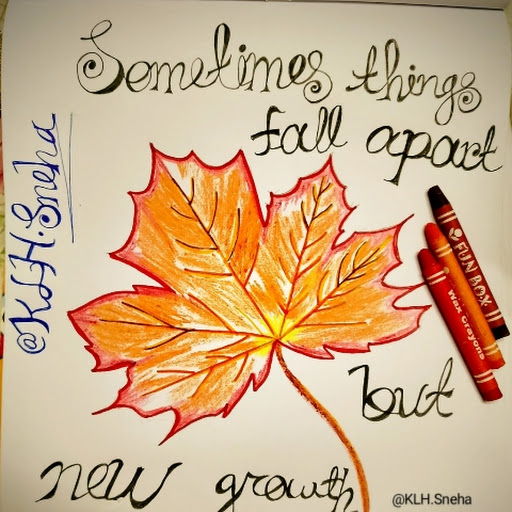 Sometimes things
fall apart
@KLH.Sneha
FUN BOX
Wax Crayons
but
new growth
@KLH.Sneha